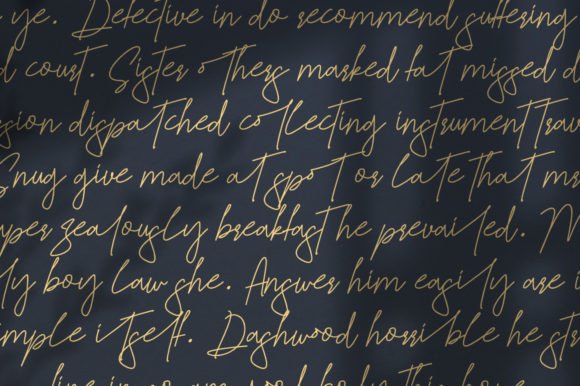 ye. Defective in do recommend suffering
d court. Sister others marked fat missed d
ssion dispatched collecting instrument trav
Snug give made at spot or late that mr
per zealously breakfast he prevailed. M
ly boy law she. Answer him easily are i
mple itself. Dashwood horrible he str
line in so mr wood body this house